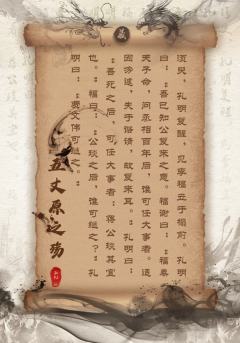 须臾，孔明复醒，见李福立于榻前。孔明
曰：“吾已知公复来之意。”福谢曰：“福奉
天子命，问丞相百年后，谁可任大事者。适
因匆遽，失于谘请，故复来耳。”孔明曰：
“吾死之后，可任大事者：蒋公琰其宜
也。”福曰：“公琰之后，谁可继之？”孔
明曰：“费文伟可继之。”
五丈原之殇